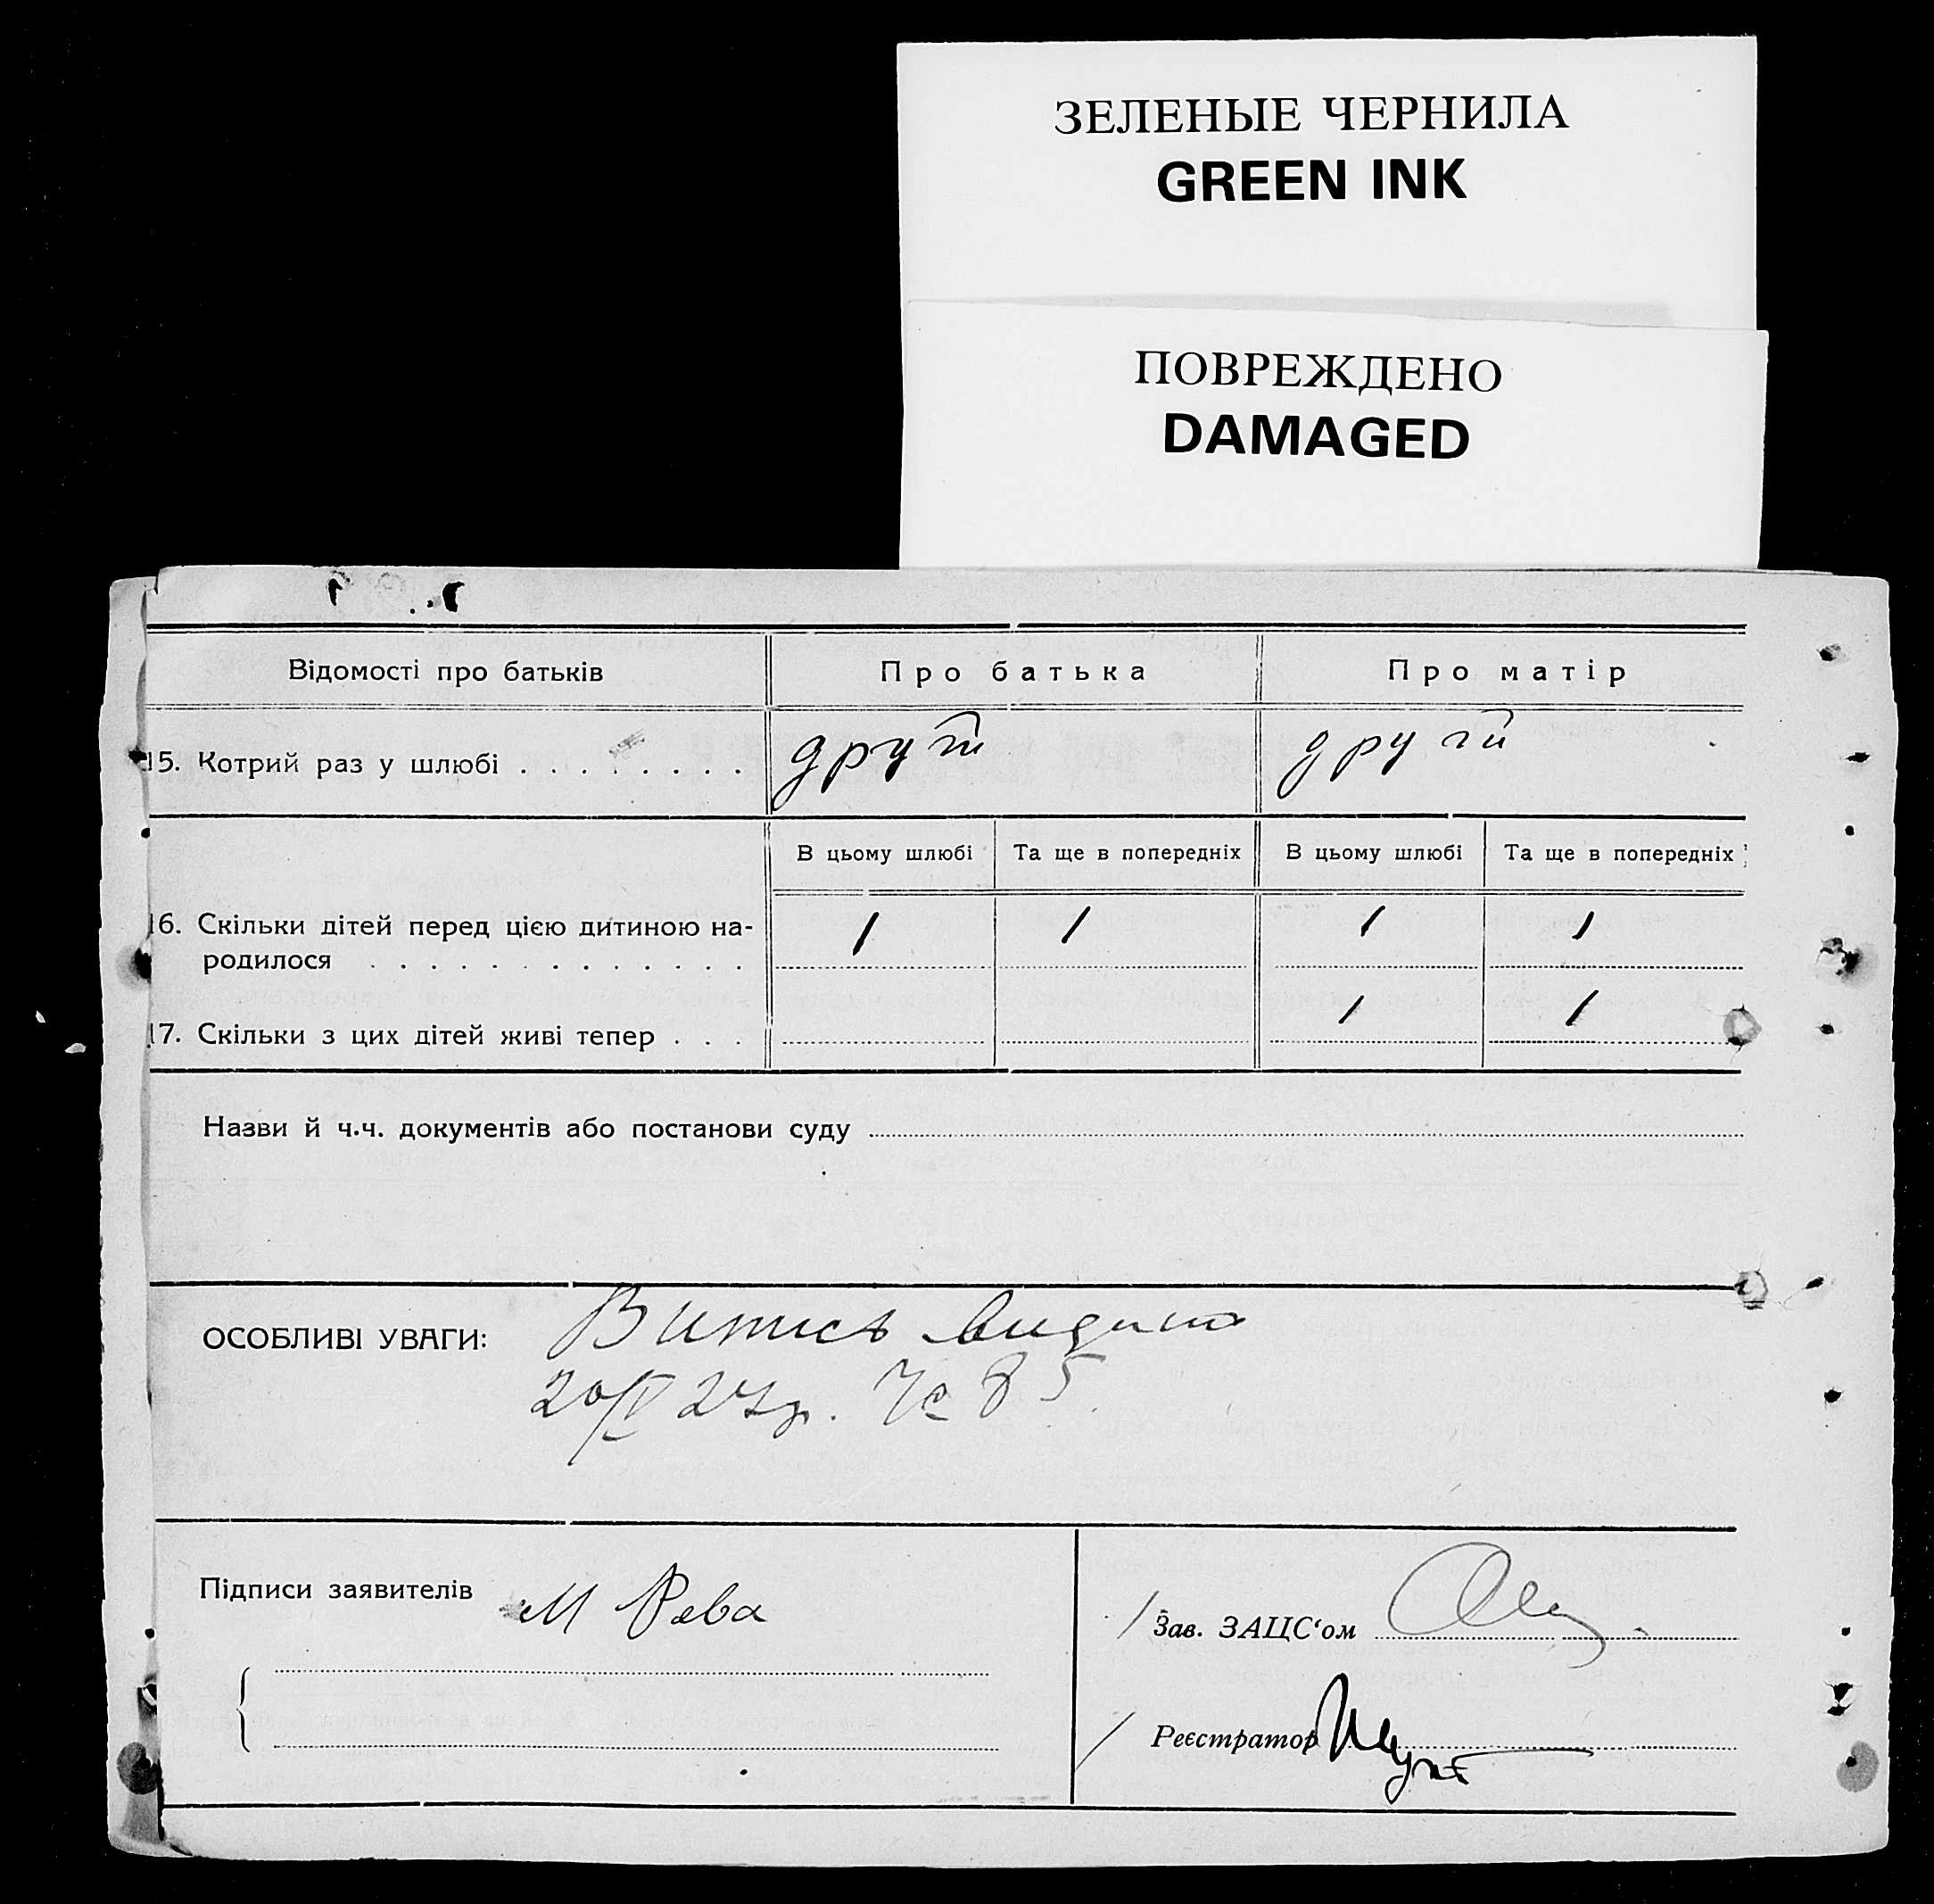 ЗЕЛЕНЫЕ ЧЕРНИЛА
GREEN INK
ПОВРЕЖДЕНО
DAMAGED
Відомості про батьків Про батька Про матір
15. Котрий раз у шлюбі . . . . . . . . другий другий
В цьому шлюбі Та ще в попередніх В цьому шлюбі Та ще в попередніх
16. Скільки дітей перед цією дитиною на- 1 1 1 1
родилося . . . . . . . . . . . . .
17. Скільки з цих дітей живі тепер . . . 1 1
Назви й ч.ч. документів або постанови суду
ОСОБЛИВІ УВАГИ: Випись видана
20/V 27р. № 85
Підписи заявителів М Рева
Зав. ЗАЦС‘ом
Реєстратор